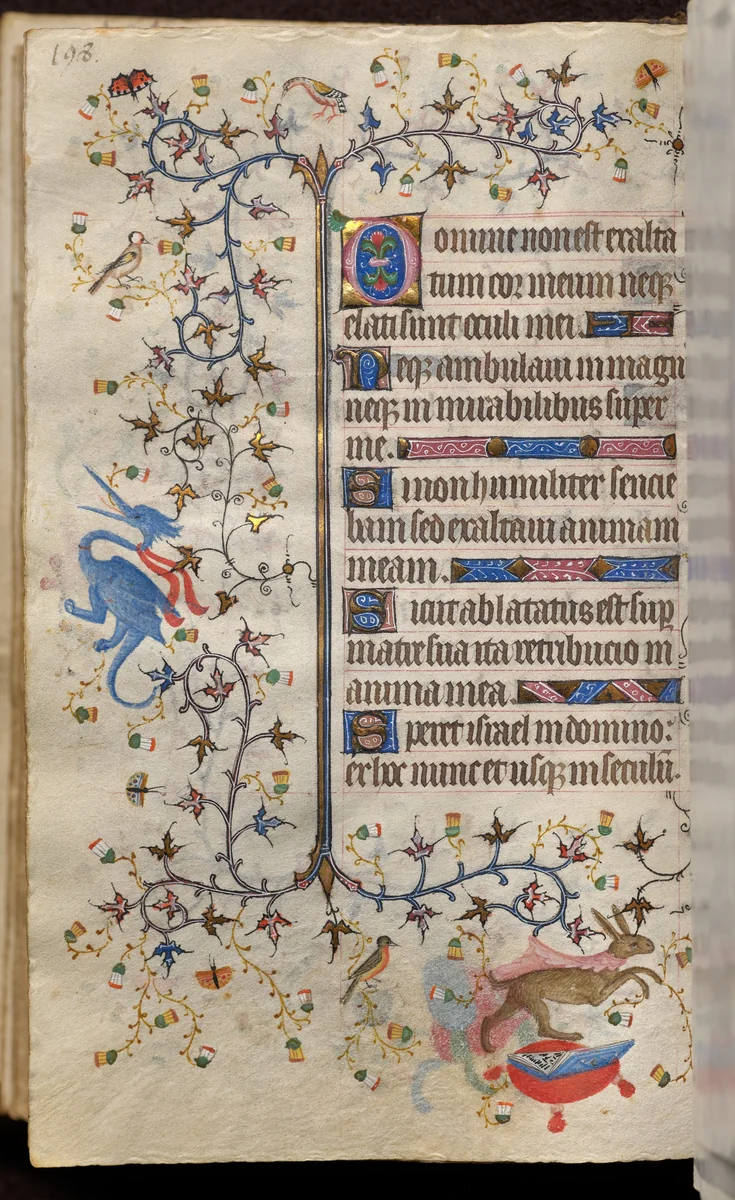 198.
Domine non est exalta
tum cor meum neq
elati sunt oculi mei.
Neq ambulaui in magn
neq in mirabilibus super
me.
Si non humiliter sencie
bam sed exaltaui animam
meam.
Sicut ablatatus est sup
matre sua ita retribucio in
anima mea.
Speret israel in domino:
ex hoc nunc et usq in seculū.